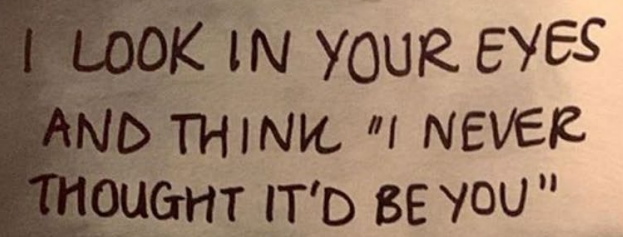 I LOOK IN YOUR EYES
AND THINK "I NEVER
THOUGHT IT'D BE YOU"